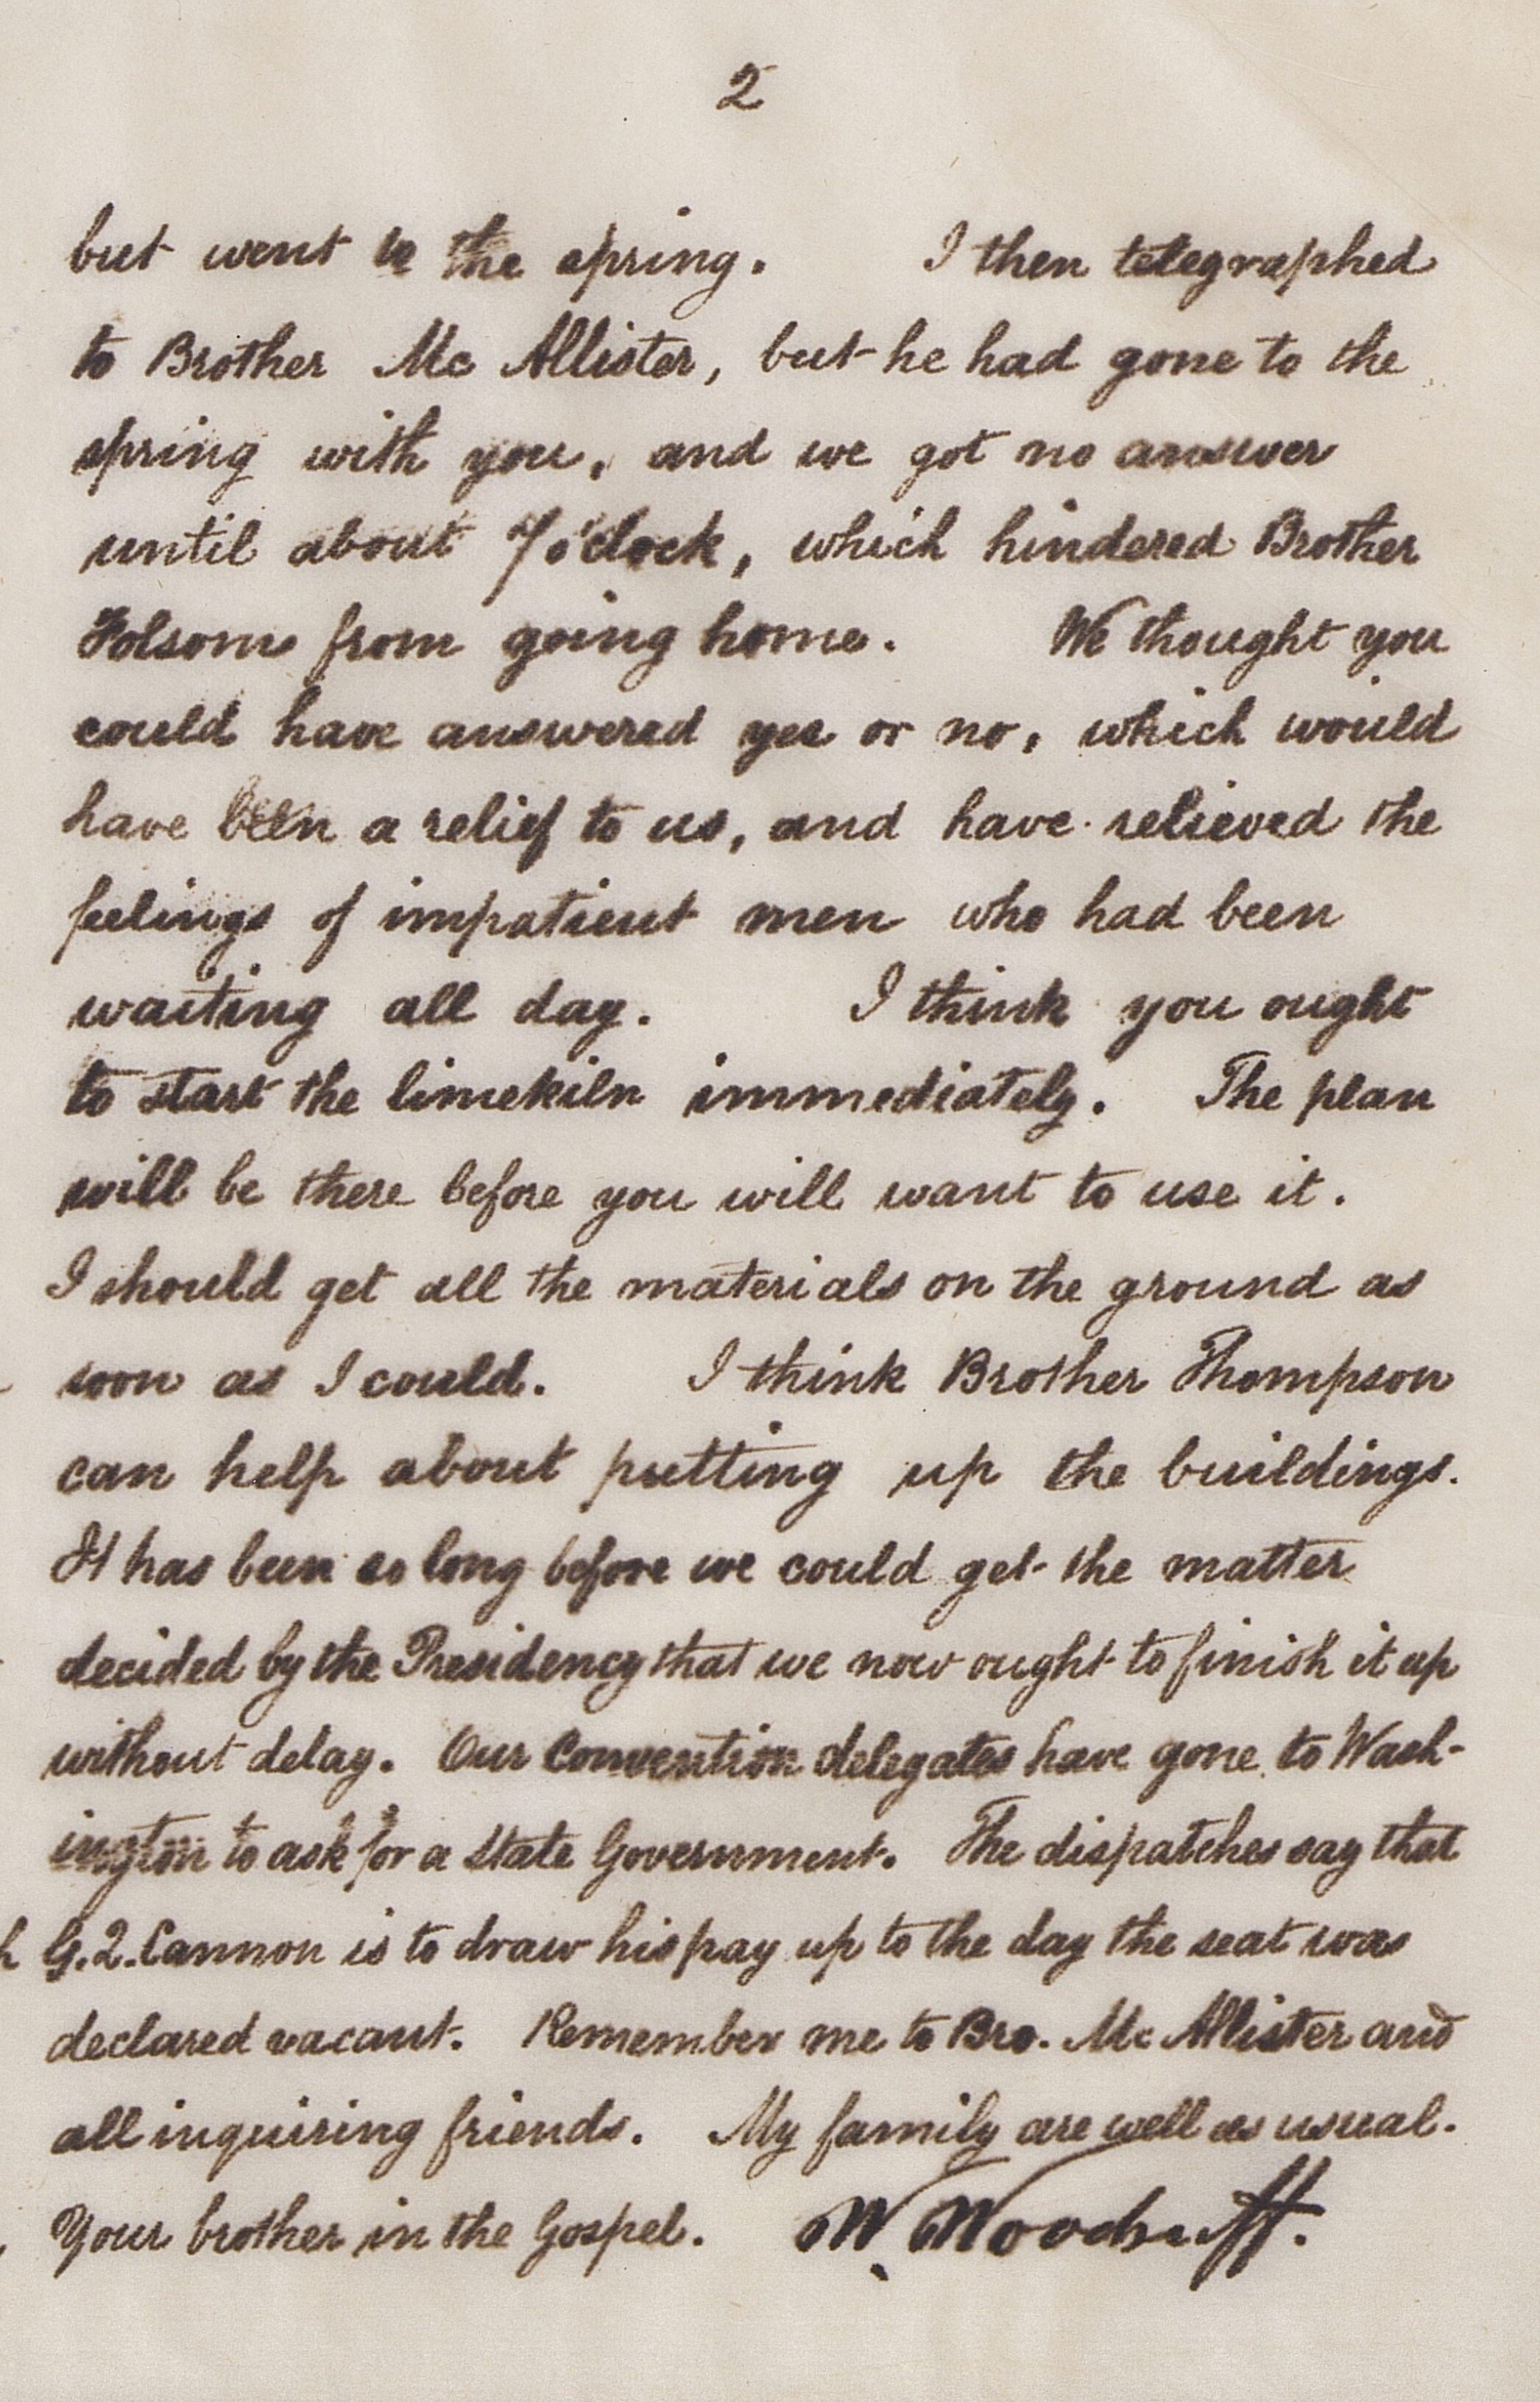 2
but went to the spring. I then telegraphed
to Brother Mc Allister, but he had gone to the
spring with you, and we got no answer
until about 7 o'clock, which hindered Brother
Folsom from going home. We thought you
could have answered yes or no, which would
have been a relief to us, and have relieved the
feelings of impatient men who had been
waiting all day. I think you ought
to start the limekiln immediately. The plan
will be there before you will want to use it.
I should get all the materials on the ground as
soon as I could. I think Brother Thompson
can help about putting up the buildings.
It has been so long before we could get the matter
decided by the Presidency that we now ought to finish it up
without delay. Our Convention delegates have gone to Wash-
ington to ask for a State Government. The dispatches say that
G. Q. Cannon is to draw his pay up to the day the seat was
declared vacant. Remember me to Bro. Mc Allister and
all inquiring friends. My family are well as usual.
Your brother in the Gospel. W. Woodruff.